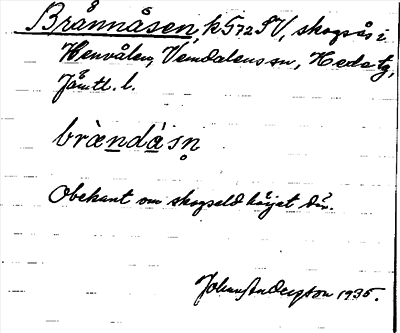 Brännåsen, k 572 SV, skogsås i
Henvålen, Vemdalens sn, Hede tg,
Jämtl. l.
bræ̀ndȧ̀sn̥
Obekant om skogseld härjat där.
Johan Andersson 1935.